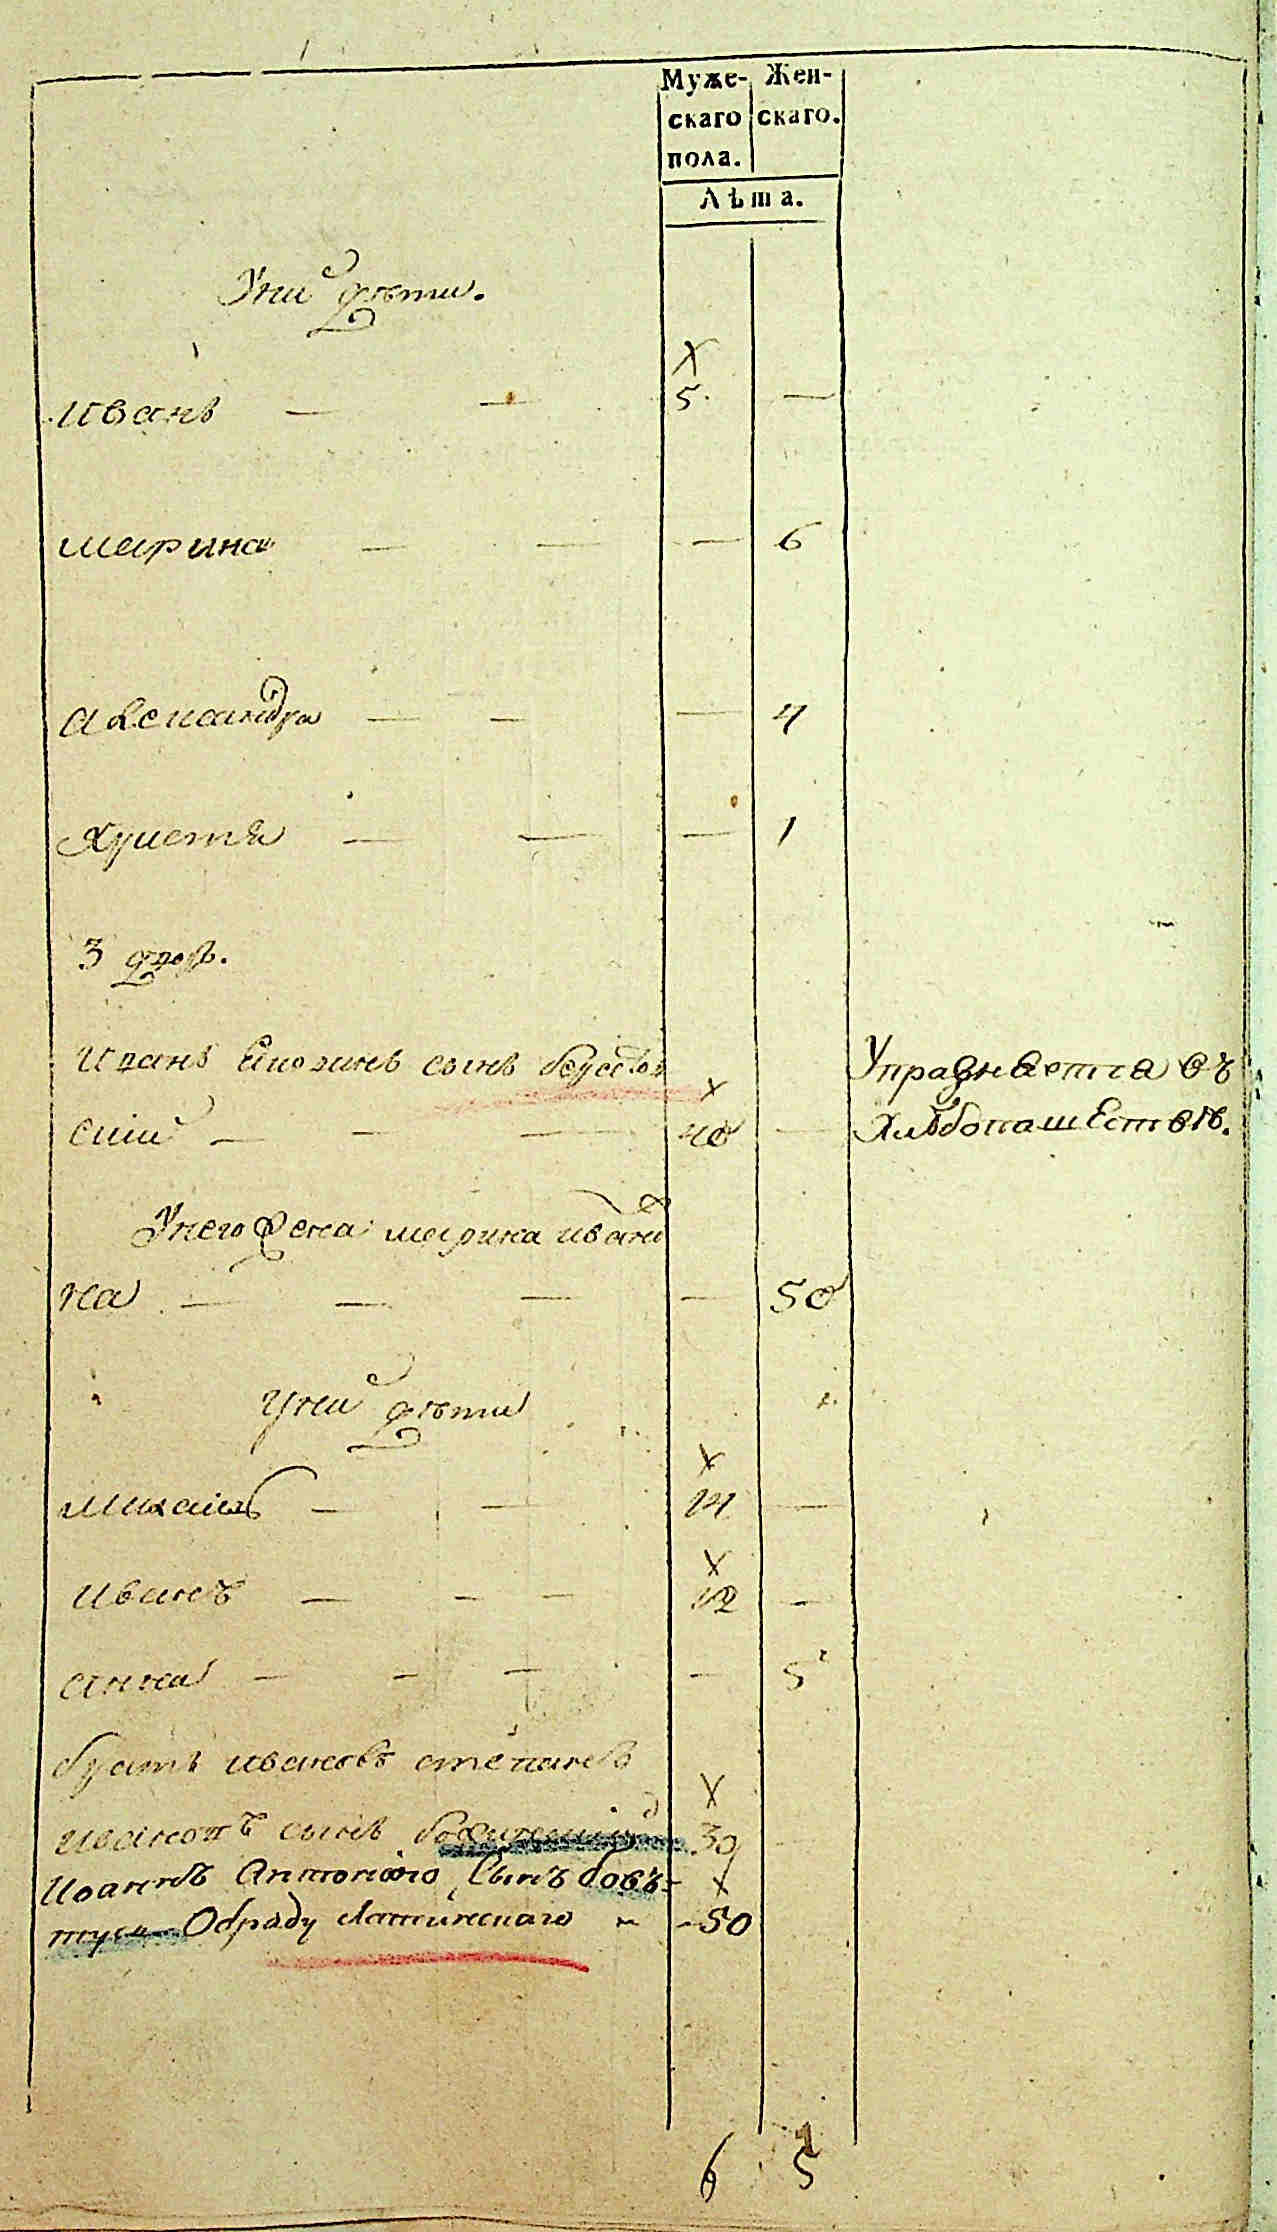 Муже- Жен-
скаго скаго.
пола.
Лѣта.
У ний дѣти.
Х
иванъ — — 5. —
марина — — — 6
александра — — — 4
Христя — — — 1
3 двор.
иванъ сынъ
Х
ский — — — 40 — Упразняется въ
Хлѣбопашествѣ.
У него жена марина ивано
на — — — — 50
У ний дѣти
Х
михаилъ — — 14 —
Х
иванъ — — — 12 —
анна — — — — 5
братъ ивановъ степанъ
Х
ивановъ сынъ 30 —
Иоаннъ Антоніого Сынъ Бовъ- Х
туса Обряду Латинскаго - 50
6 5